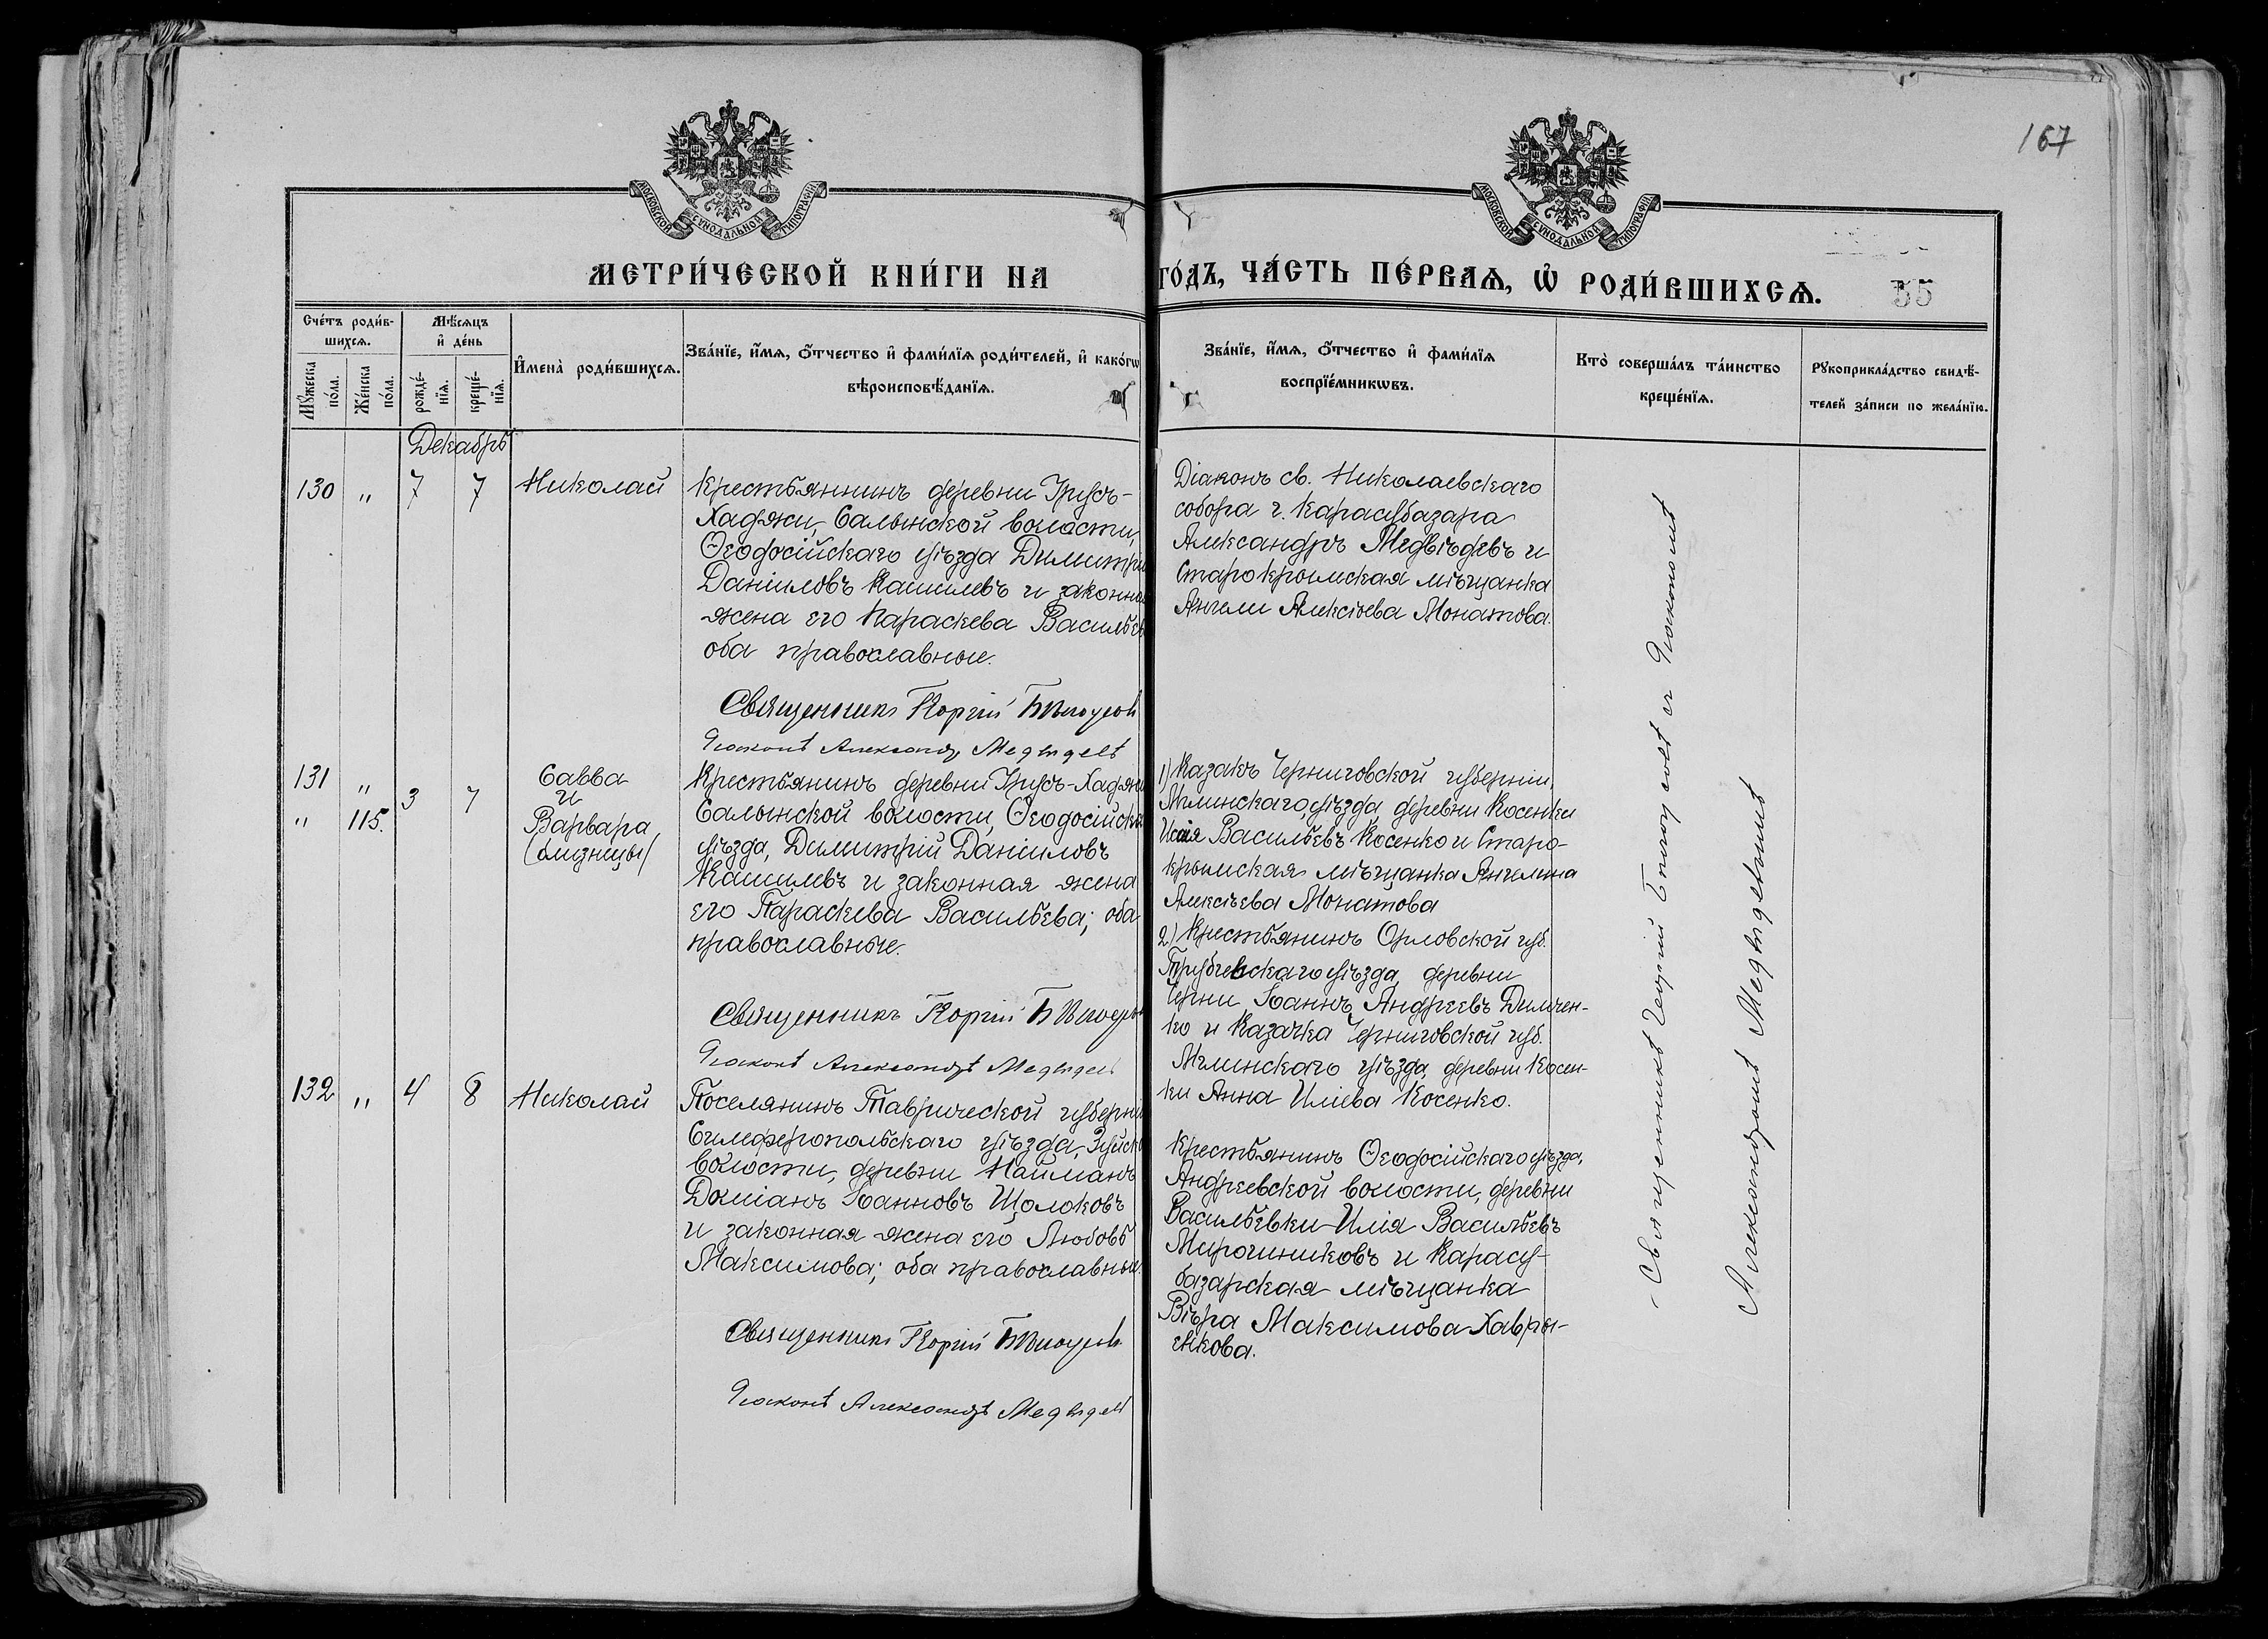 167
МОСКОВСКОЙ СѴНОДАЛЬНОЙ ТИПОГРАФІИ
МОСКОВСКОЙ СѴНОДАЛЬНОЙ ТИПОГРАФІИ
МЕТРИ́ЧЕСКОЙ КНИ́ГИ НА ГО́ДЪ, ЧА́СТЬ ПЕ́РВАѦ, Ѡ҆ РОДИ́ВШИХСѦ.
55
Сче́тъ роди́в-
шихсѧ.
Мѣ́сѧцъ
и҆ де́нь
Мꙋ́жеска
по́ла.
Же́нска
по́ла.
рожде́-
нїѧ.
креще́-
нїѧ.
И҆мена̀ роди́вшихсѧ.
Зва́нїе, и҆́мѧ, о҆́тчество и҆ фами́лїѧ роди́телей, и҆ како́гѡ
вѣроисповѣ́данїѧ.
Зва́нїе, и҆́мѧ, о҆́тчество и҆ фами́лїѧ
воспрїе́мникѡвъ.
Кто̀ соверша́лъ та́инство
креще́нїѧ.
Рꙋкоприкла́дство свидѣ́-
телей за́писи по жела́нїю.
Декабрь
130 " 7 7 Николай
Крестьянинъ деревни Урусъ-
Хаджи, Салынской волости,
Ѳеодосійскаго уѣзда Димитрі
Даніиловъ Кашилевъ и законна
жена его Параскева Василье
оба православные.
Священникъ Георгій Бѣлоусов
Діаконъ Александръ Медвѣдевъ
Діаконъ св. Николаевскаго
собора г. Карасубазара
Александръ Медвѣдевъ и
Старокрымская мѣщанка
Ангели Алексіева Монатова.
131 " 3 7 Савва
и
" 115. Варвара,
(близнецы)
Крестьянинъ деревни Урусъ-Хаджи
Салынской волости, Ѳеодосійска
уѣзда, Димитрій Даніиловъ
Кашилевъ и законная жена
его Параскева Васильева; оба
православные.
Священникъ Георгій Бѣлоусов
Діаконъ Александръ Медвѣдев
1) Казакъ Черниговской губерніи,
Мглинскаго уѣзда, деревни Косенки
Васильевъ Косенко и Старо-
крымская мѣщанка Ангелина
Алексѣева Монатова
2) Крестьянинъ Орловской губ.
Трубчевскаго уѣзда, деревни
Черни Іоаннъ Андреевъ Димчен-
ко и Казачка Черниговской губ.
Мглинскаго уѣзда, деревни Косен-
ки Анна Иліева Косенко.
132 " 4 8 Николай
Поселянинъ Таврической губерни
Симферопольскаго уѣзда, Зуйск
волости, деревни Найманъ
Доміанъ Іоанновъ Щолоковъ
и законная жена его Любовь
Максимова; оба православные.
Священникъ Георгій Бѣлоусовъ
Діаконъ Александръ Медвѣдев
Крестьянинъ Ѳеодосійскаго уѣзда,
Андреевской волости, деревни
Васильевки Илія Васильевъ
Мирошниковъ и Карасу-
базарская мѣщанка
Вѣра Максимова Хавры-
енкова.
Священникъ Георгій Бѣлоусовъ съ Діакономъ
Александромъ Медвѣдевымъ